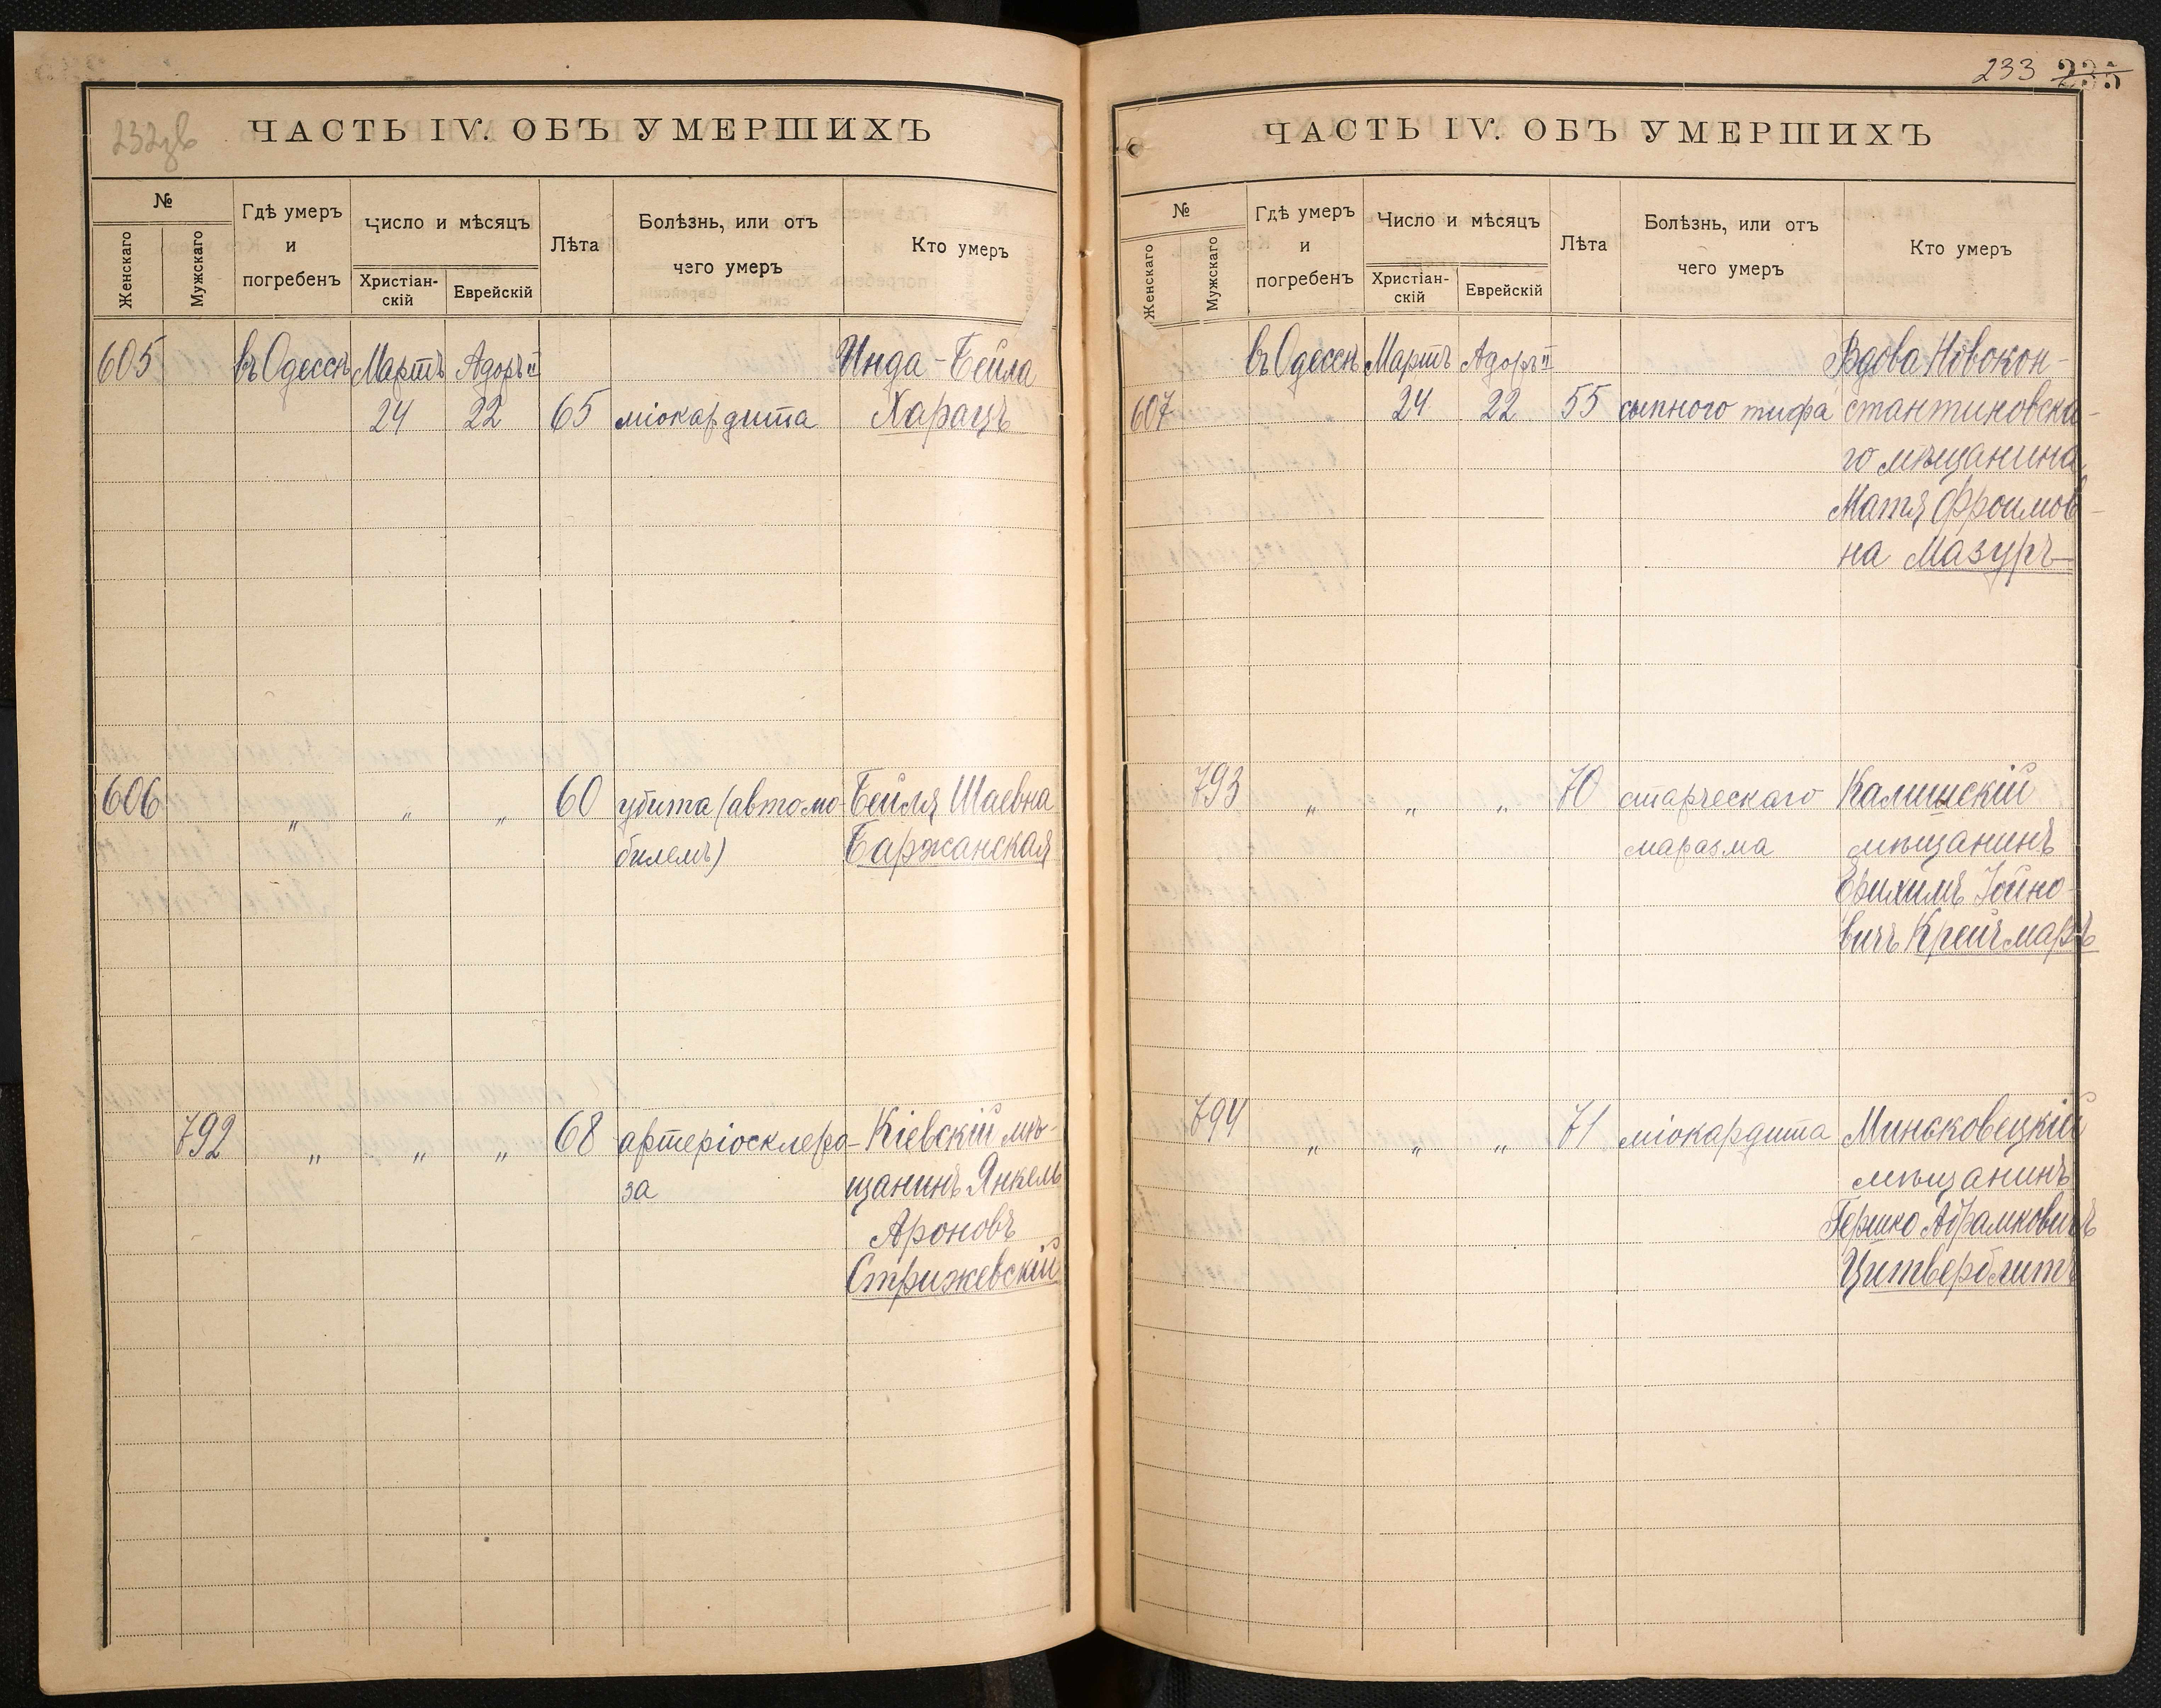 232зв
ЧАСТЬ IV. ОБЪ УМЕРШИХЪ
№
Женскаго
Мужскаго
Гдѣ умеръ
и
погребенъ
Число и мѣсяцъ
Христіан-
скій
Еврейскій
Лѣта
Болѣзнь, или отъ
чего умеръ
Кто умеръ
605 въ Одессѣ Мартъ Адоръ II Инда-Бейла
24 22 65 міокардита Харацъ
606 " " " 60 убита (автомо- Бейля Шаевна
билемъ) Баржанская
792 " " " 68 артеріосклеро- Кіевскій мѣ-
за щанинъ Янкель
Ароновъ
Стрижевскій
233 235
ЧАСТЬ IV. ОБЪ УМЕРШИХЪ
№
Женскаго
Мужскаго
Гдѣ умеръ
и
погребенъ
Число и мѣсяцъ
Христіан-
скій
Еврейскій
Лѣта
Болѣзнь, или отъ
чего умеръ
Кто умеръ
въ Одессѣ Мартъ Адоръ II Вдова Новокон-
607 24 22 55 сыпного тифа стантиновска-
го мѣщанина
Матя Фроимов-
на Мазуръ
793 " " " 70 старческаго Калишскій
маразма мѣщанинъ
Ерихимъ Іойно-
вичъ Крейчмаръ
794 " " " 71 міокардита Миньковецкій
мѣщанинъ
Гершко Абрамковичъ
Цитверблитъ